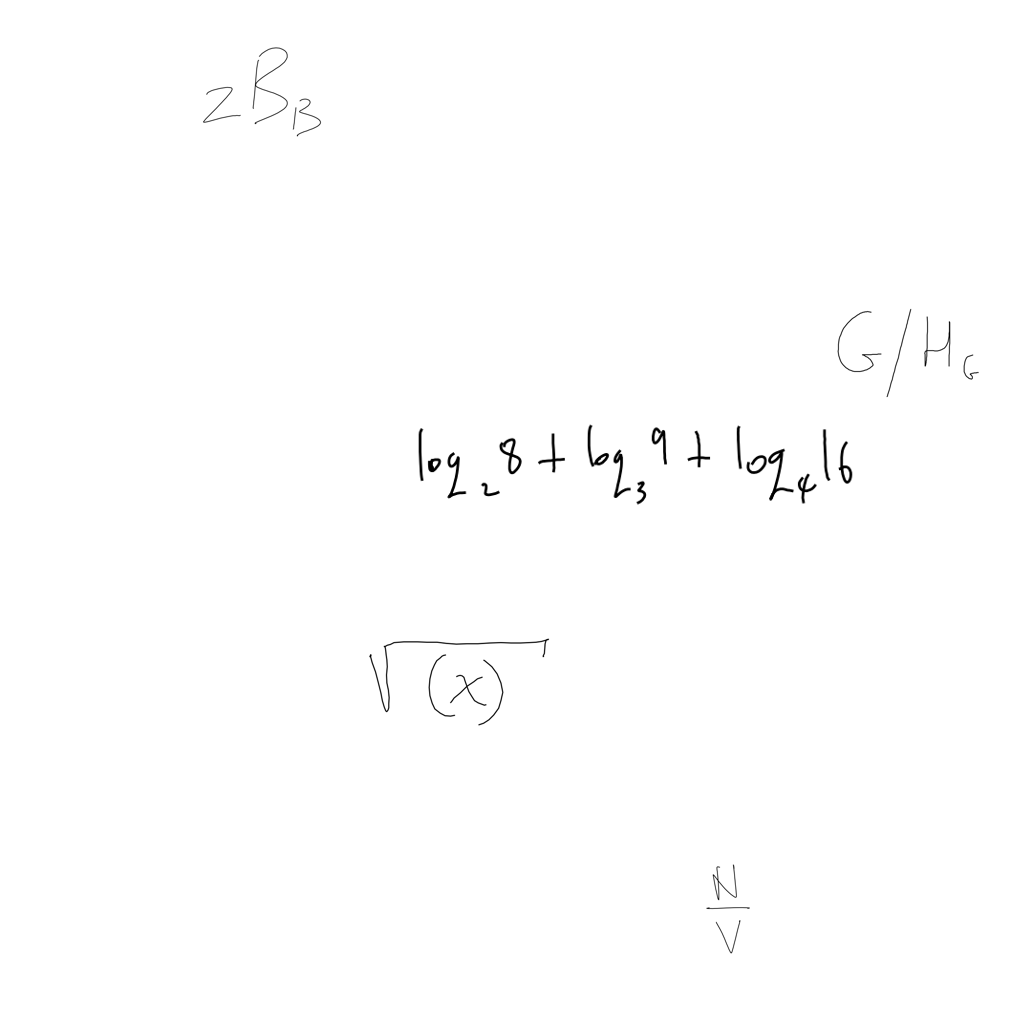 zB_B
G/H_G
log_2 8 + log_3 9 + log_4 16
√(x)
N/V